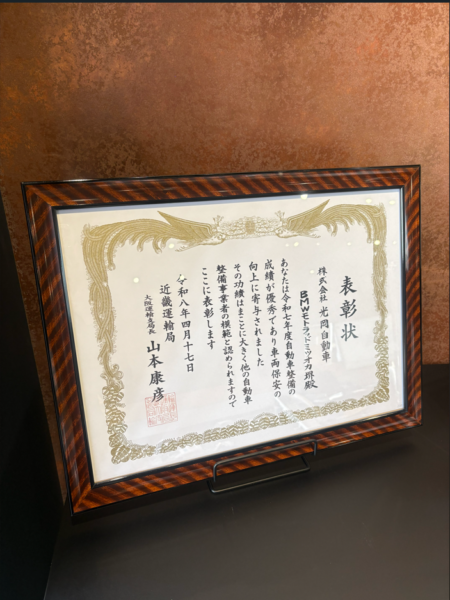 表彰状
株式会社 光岡自動車
BMWモトラッドミツオカ堺殿
あなたは令和七年度自動車整備の
成績が優秀であり車両保安の
向上に寄与されました
その功績はまことに大きく他の自動車
整備事業者の模範と認められますので
ここに表彰します
令和八年四月十七日
近畿運輸局
大阪運輸支局長 山本康彦